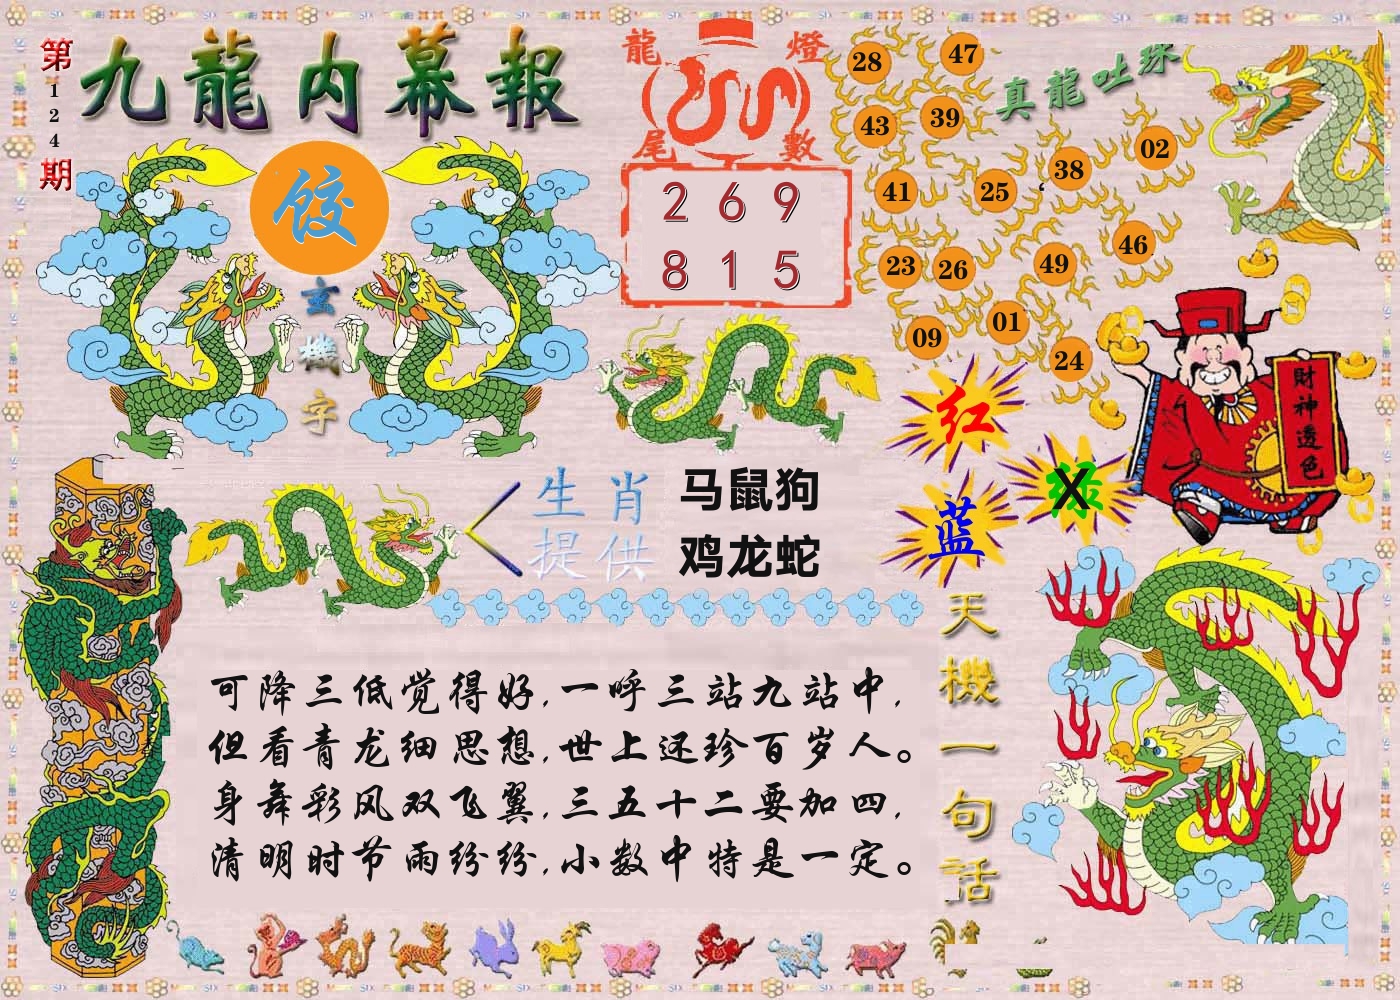 第124期
九龍内幕報
饺
玄機字
龍燈
尾數
2 6 9
8 1 5
真龍吐珠
28 47
43 39
02
38
41 25
46
23 26 49
01
09
24
財神透色
红
绿
X
蓝
生肖
提供
马鼠狗
鸡龙蛇
天機一句話
可降三低觉得好,一呼三站九站中,
但看青龙细思想,世上还珍百岁人。
身舞彩风双飞翼,三五十二要加四,
清明时节雨纷纷,小数中特是一定。